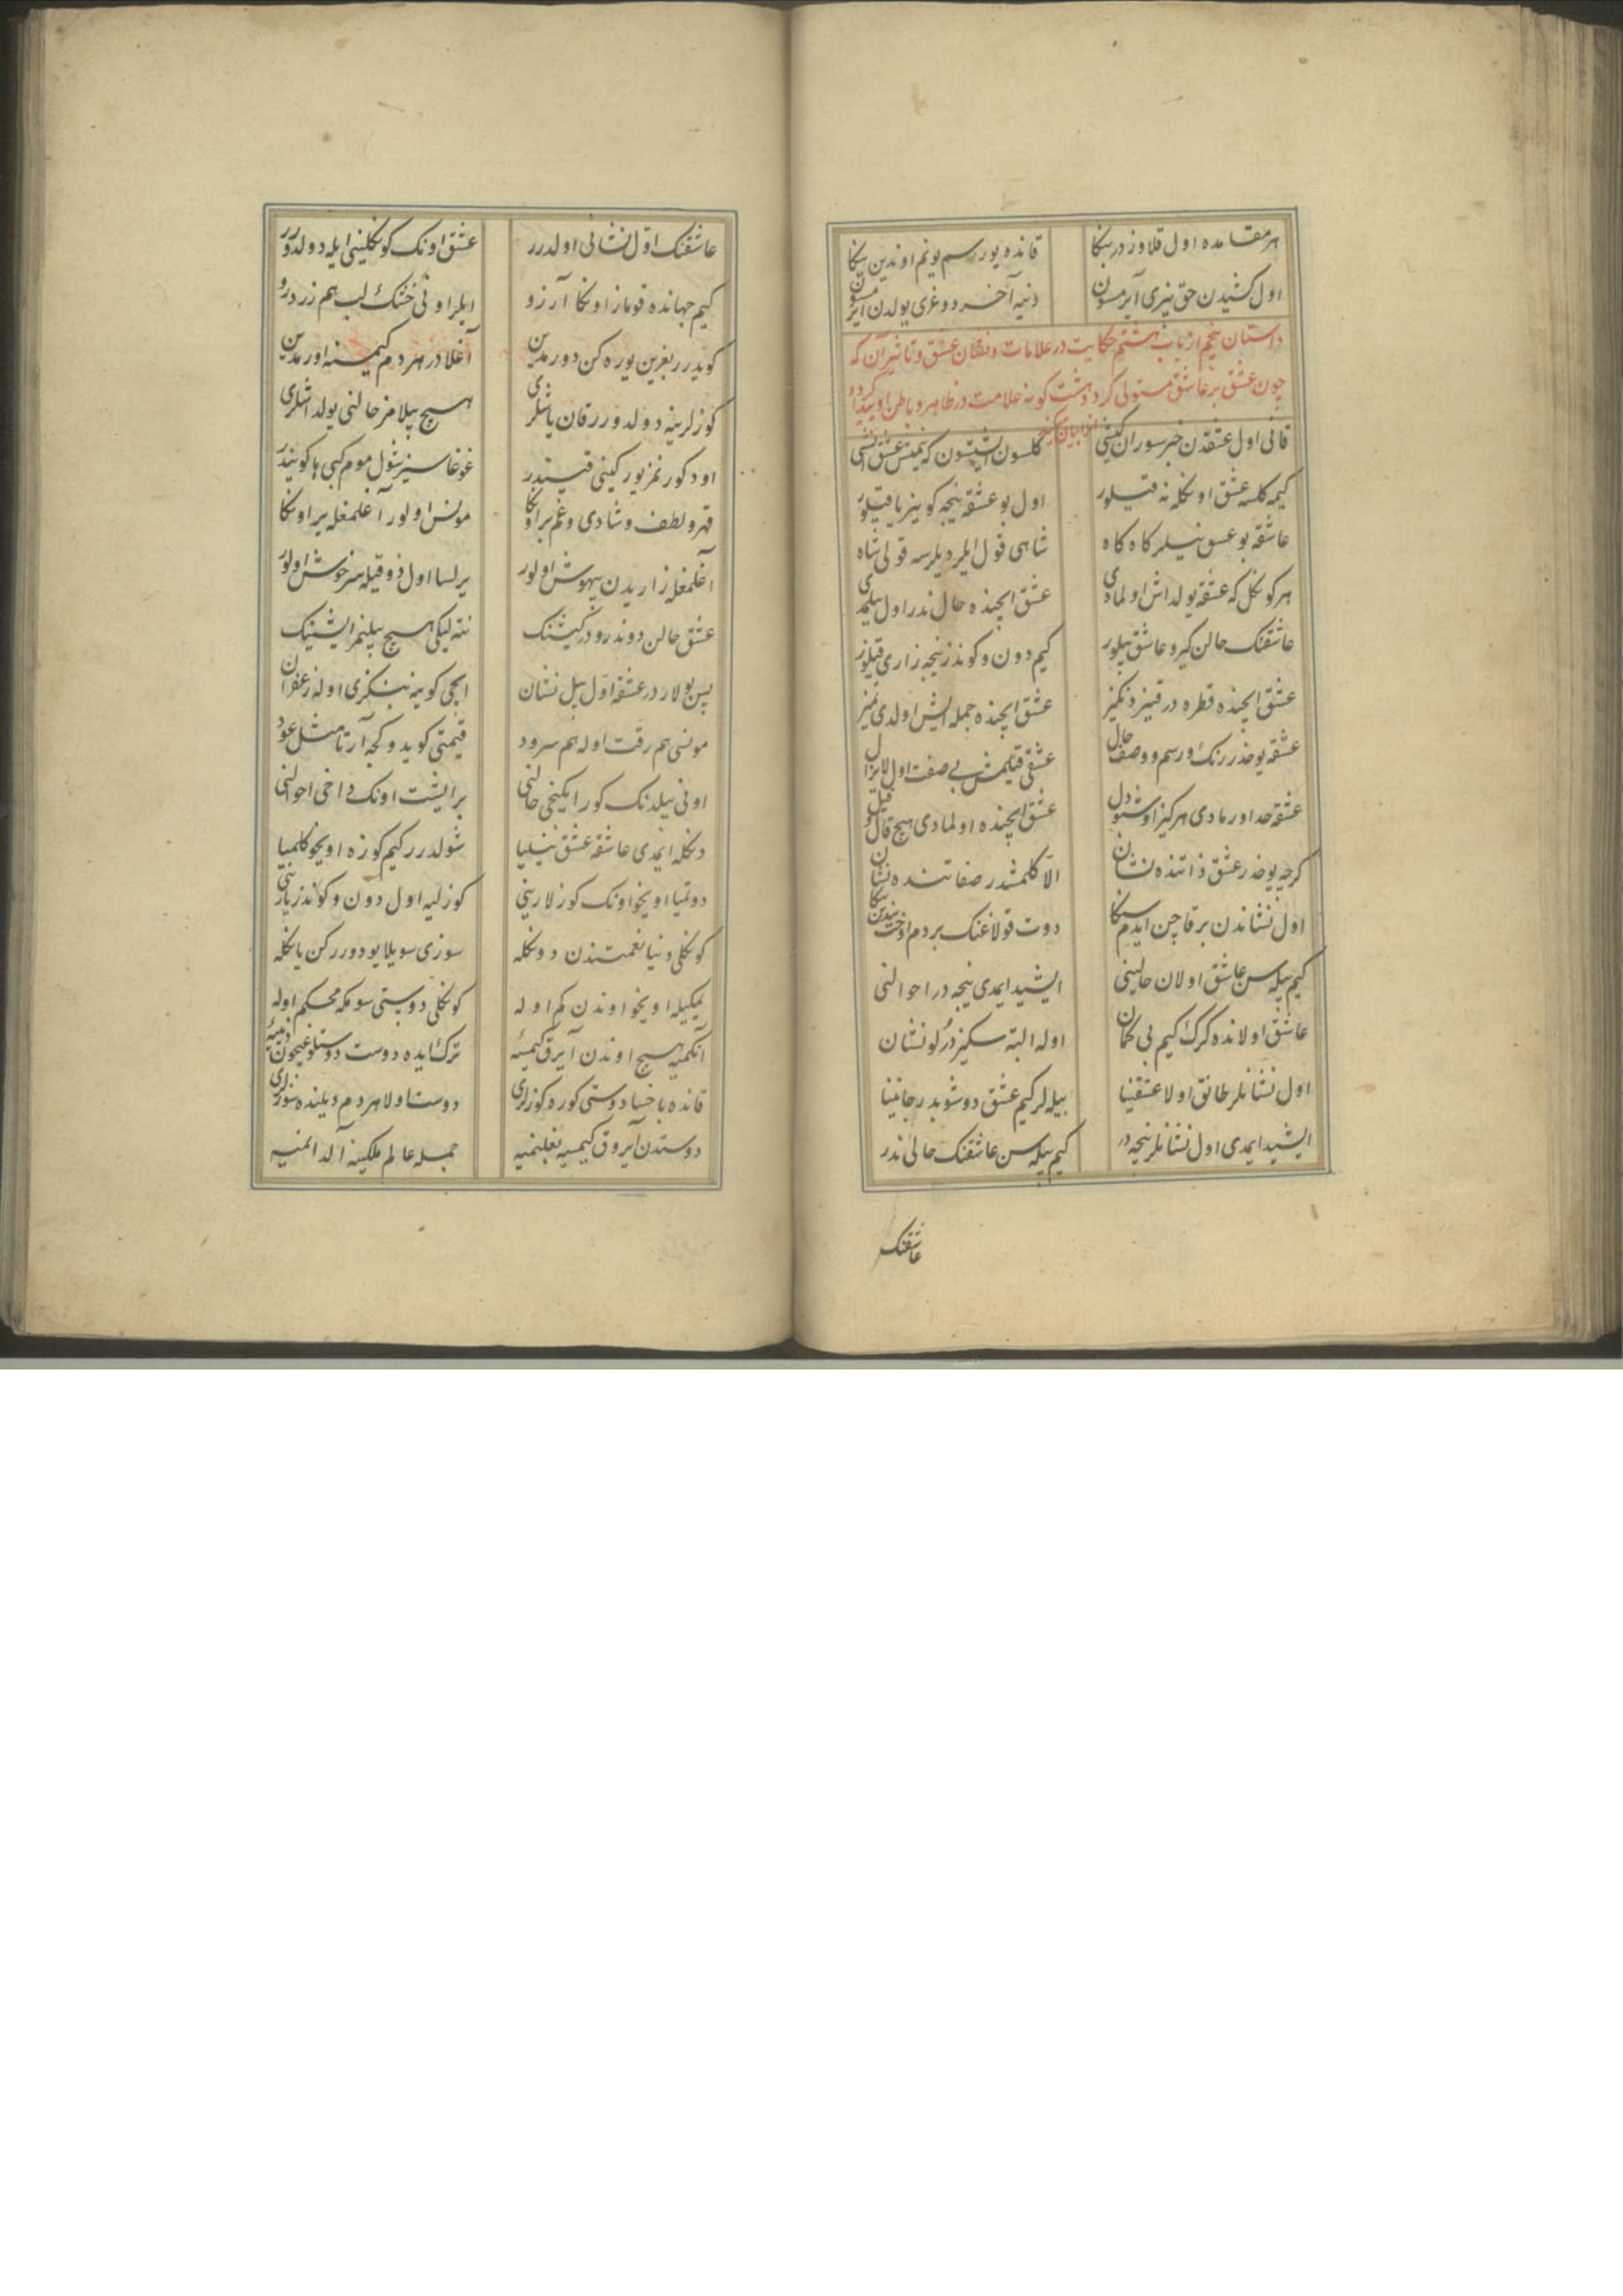 هر مقامده اول قلاوزدر بنكا قانده یورر سم یونم اوندین یكا
اول كشیدن حق بیزی آیرمسون دنیه آخر دوغری یولدن آیرمسون
داستان پنجم از باب هشتم حكایت در علامات و نشان عشق و تاثیر آن كه
چون عشق بر عاشق مستولی كردد هشت كونه علامت در ظاهر و باطن او پیدا كردد
قانی اول عشقدن خبر سوران كیشی كلسون ایشتسون كه نیمتش عشق ایشی
كیمه كلسه عشق اونكله نه قیلور اول بو عشقه نیجه كوینر یا قیلور
عاشقه بو عشق نیلر كاه كاه شاهی قول ایلر دیلرسه قولی شاه
هر كونكل كه عشقه یولداش اولمادی عشق ایچنده حال ندر اول بیلمدی
عاشقنك حالن كیرو عاشق بیلور كیم دون و كوندز نیجه زاری قیلور
عشق ایچنده قطره در قینر دنكیز عشق ایچنده جمله ایش اولدی تمیز
عشقه یوخدر رنك و رسم و وصف حال عشقی قیلمش بی صفت اول لایزال
عشقه حد اورمادی هركیز اوش دل عشق ایچنده اولمادی هیچ قال و قیل
كرچه یوخدر عشق ذاتنده نشان الا كلمشدر صفاتنده نشان
اول نشاندن بر قاچین ایدم سكا دوت قولاغنك بر دم اوخت بندین یكا
كیم بیله سن عاشق اولان حالینی ایشید ایمدی نیجه در احوالنی
عاشق اولانده كرك كیم بی كمان اوله البته سكیز درلو نشان
اول نشانلر طانق اولا عشقنیا بیله لر كیم عشق دوشوبدر جانینا
ایشید ایمدی اول نشانلر نیجه در كیم بیله سن عاشقنك حالی ندر
عاشقنك
عاشقنك اول نشانی اولدرر عشق اونك كونكلینی ایله دولدورر
كیم جهانده قوماز اونكا آرزو ایلر اونی خشك لب هم زرد رو
كویدرر بغرین یوره كن دورمدین آغلادر هر دم كیمسنه اورمدین
كوزلرینه دولدورر قان یاشلری هیچ بیلامز حالنی یولداشلری
اود كورنمز یورر كینی قیندیرر غوغاسیز شول موم كیبی ها كویندرر
قهر و لطف و شادی و غم بر اونكا مونس اولور آغلمغله یر اونكا
آغلمغله زاریدن بیهوش اولور یرلسا اول ذوقیله سرخوش اولور
عشق حالن دوندرودر كیشنك نته لیكی هیچ بیلنمز ایشینك
پس بولار در عشقه اول بیل نشان ایچی كوینه بنكزی اوله زعفران
مونسی هم رقت اوله هم سرود قیمتی كویدوكچه آرتا مثل عود
اونی بیلدنك كور ایكینجی حالنی بر ایشت اونك داخی احوالنی
دنكله ایمدی عاشقه عشق نیلیا شولدرر كیم كوزه اویخو كلمیا
دوتمیا اویخو اونك كوزلارینی كوزلیه اول دون و كوندز یارینی
كونكلی دنیا نعمتندن دونكله سوزی سویلا یو دورركن یانكله
یمكیله اویخو اوندن كم اوله كونكلی دوستی سومكه محكم اوله
آنكمیه هیچ اوندن آیرق كیمسیه ترك ایده دوست دوستلوغیچون دنییه
قانده باخسا دوستی كوره كوزلری دوست اولا هر دم دیلنده سوزلری
دوستدن آیروق كیمسیه بغلنمیه جمله عالم ملكینه آلدانمیه